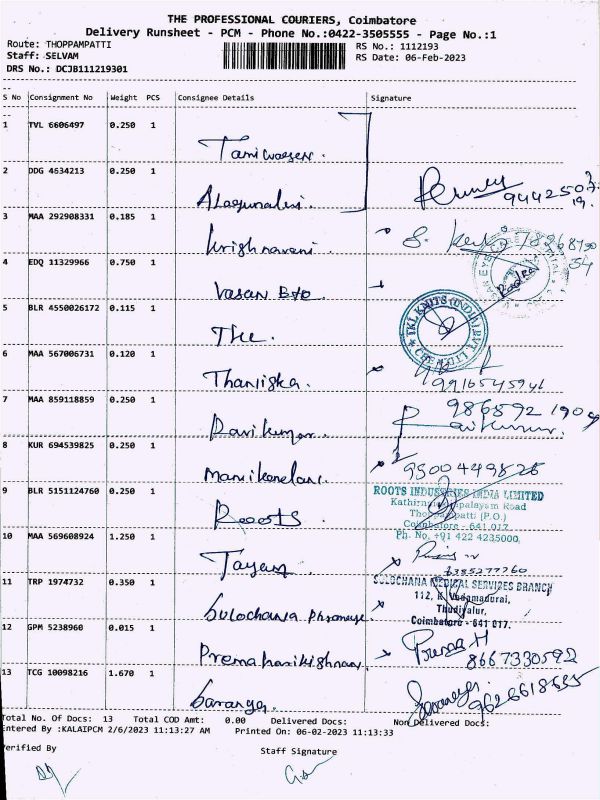 THE PROFESSIONAL COURIERS, Coimbatore
Delivery Runsheet - PCM - Phone No.:0422-3505555 - Page No.:1
Route: THOPPAMPATTI RS No.: 1112193
Staff: SELVAM RS Date: 06-Feb-2023
DRS No.: DCJB111219301
S No Consignment No Weight PCS Consignee Details Signature
1 TVL 6606497 0.250 1
2 DDG 4634213 0.250 1
Alagumalai. 9442507
3 MAA 292908331 0.185 1
Krishnaveni.
4 EDQ 11329966 0.750 1
Vasan Eye
5 BLR 4550026172 0.115 1
TKL KNITS (INDIA) PVT. LTD
CHENNAI
The.
6 MAA 567006731 0.120 1
Thaniska.
7 MAA 859118859 0.250 1
Ravikumar. 986592 1909
8 KUR 694539825 0.250 1
Manikandan.
9 BLR 5151124760 0.250 1
ROOTS INDUSTRIES INDIA LIMITED
Kathirnaickenpalayam Road
Thoppampatti (P.O.)
Coimbatore - 641 017.
Ph. No. +91 422 4235000
Rooots
10 MAA 569608924 1.250 1
11 TRP 1974732 0.350 1
SULOCHANA MEDICAL SERVICES BRANCH
112, K. Vadamadurai,
Thudiyalur,
Coimbatore - 641 017.
Sulochana
12 GPM 5238960 0.015 1
Premaharikishnan Prema H
8667330592
13 TCG 10098216 1.670 1
Saranya.
Total No. Of Docs: 13 Total COD Amt: 0.00 Delivered Docs: Non Delivered Docs:
Entered By :KALAIPCM 2/6/2023 11:13:27 AM Printed On: 06-02-2023 11:13:33
Verified By Staff Signature